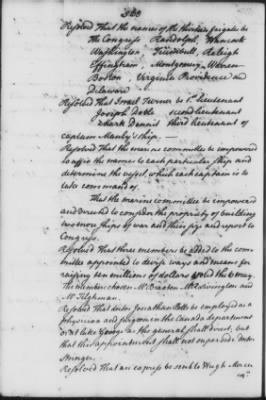 Resolved That the names of the thirteen frigates be
The Congress Randolph Hancock
Washington, Trumbull, Raleigh
Effingham, Montgomery Warren
Boston, Virginia Providence and
Delaware
Resolved That Israel Turner be 1st lieutenant
Joseph Doble second lieutenant
Mark Dennis third lieutenant of
captain Manly's ship,—
Resolved That the marine committee be impowered
to affix the names to each particular ship and
determine the vessel which each captain is to
take command of.
That the marine committee be impowered
and directed to consider the propriety of building
two more ships of war and their size and report to
Congress.
Resolved That three members be added to the com-
mittee appointed to devise ways and means for
raising ten millions of dollars
The members chosen Mr Braxton Mr Rowington and
Mr Tilghman.
Resolved That doctor Jonathan Potts be employed as a
physician and surgeon in the Canada department
or at lake George as the general shall direct, but
that this appointment shall not supersede doctor
Stringer.
Resolved That an express be sent to Hugh Mercer